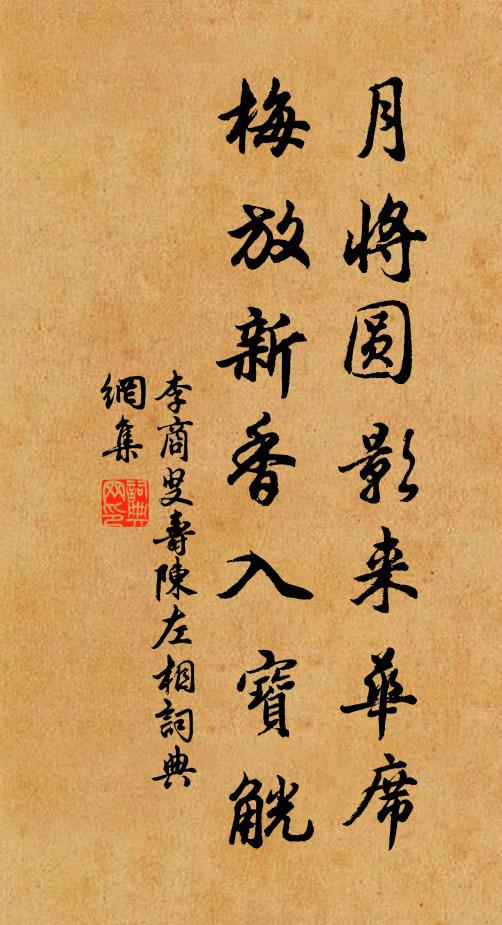 月将圆影来華席
梅放新香入寶觥
李商叟壽陳左相詞典
網集
詞典
网印